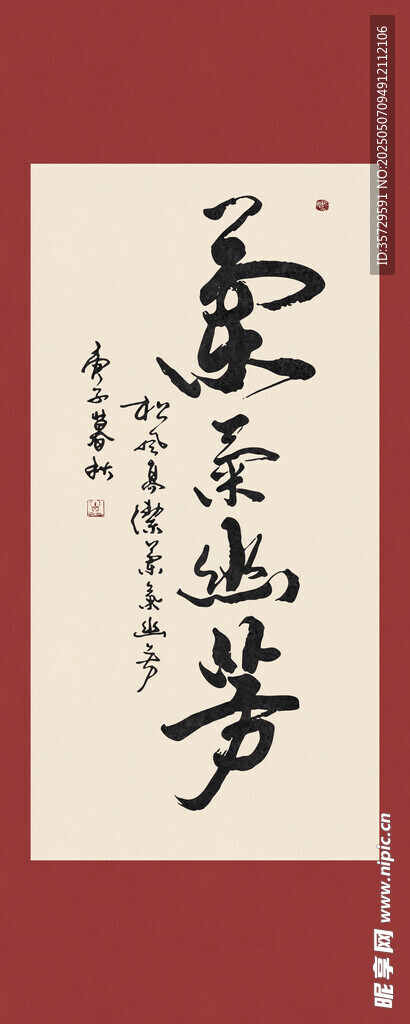 蘭氣幽芳
松風高潔蘭氣幽芳
庚子暮秋
ID:35729591 NO:20250507094912112106
昵享网 www.nipic.cn